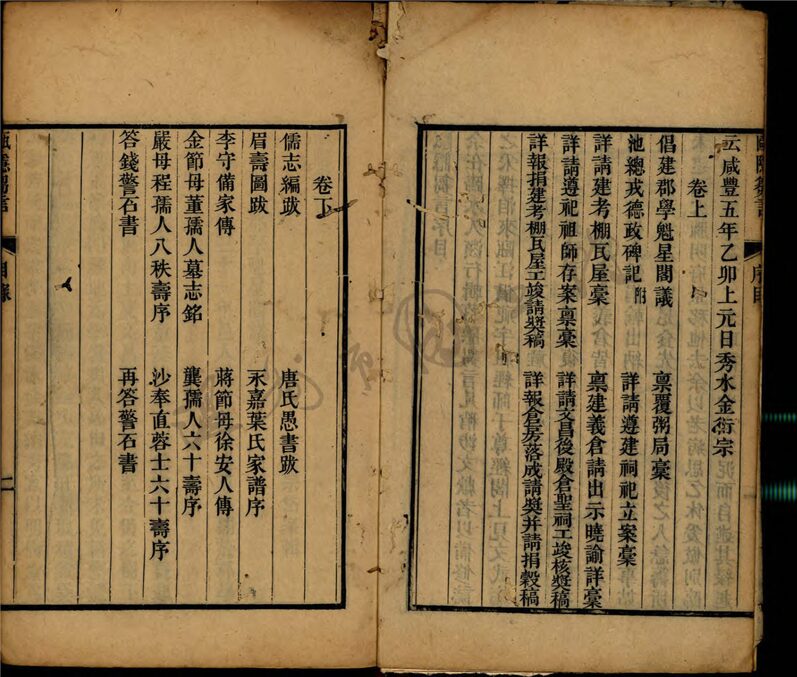 云咸豐五年乙卯上元日秀水金衍宗
卷上
倡建郡學魁星閣議 稟覆粥局稾
池總戎德政碑記附 詳請遵建祠祀立案稾
詳請建考棚瓦屋稾 稟建義倉請出示曉諭詳稾
詳請遵祀祖師存案稟稾 詳請文昌後殿倉聖祠工竣核獎稿
詳報捐建考棚瓦屋工竣請獎稿 詳報倉房落成請獎并請捐穀稿
序目
卷下
儒志編跋 唐氏愚書跋
眉壽圖跋 永嘉葉氏家譜序
李守備家傳 蔣節母徐安人傳
金節母董孺人墓志銘 龔孺人六十壽序
嚴母程孺人八秩壽序 沙奉直蓉士六十壽序
答錢警石書 再答警石書
目錄
二